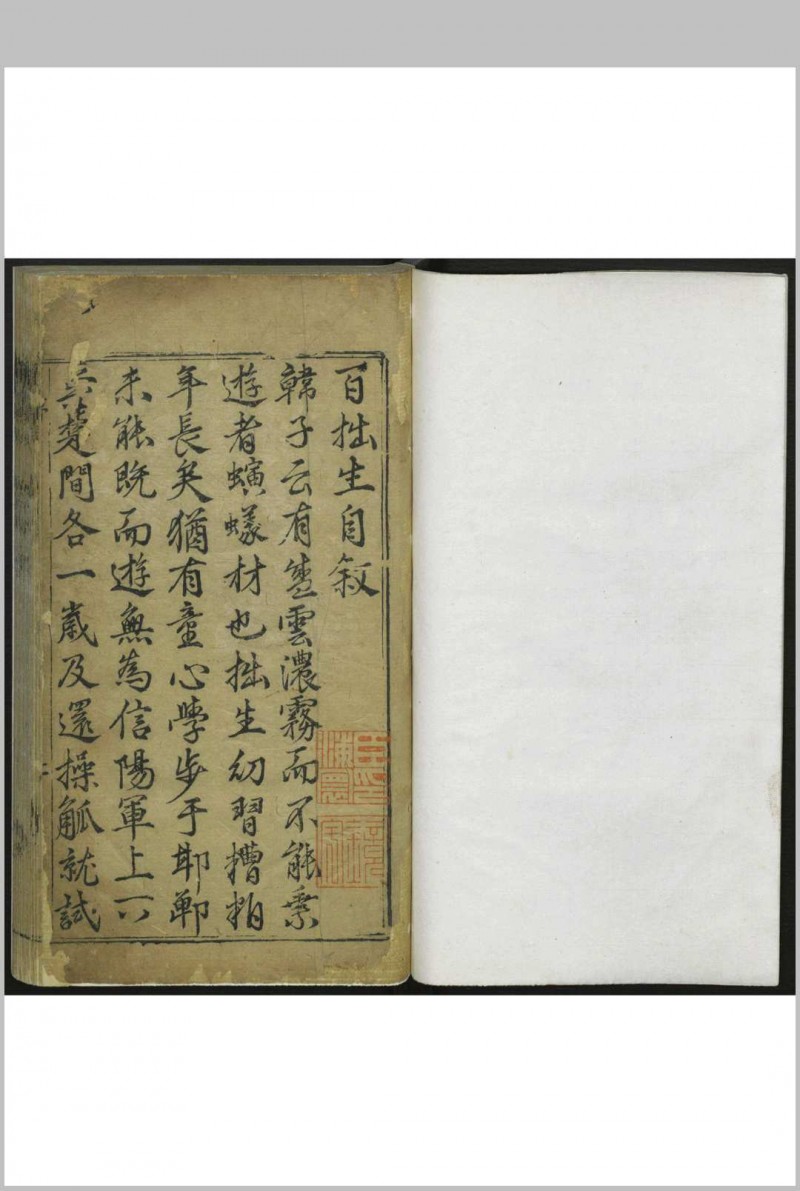 百拙生自敘
韓子云有盛雲濃霧而不能乘
遊者螾螘材也拙生幼習糟粕
年長矣猶有童心學步于邯鄲
未能既而遊無為信陽軍上下
吳楚間各一歲及還操觚就試